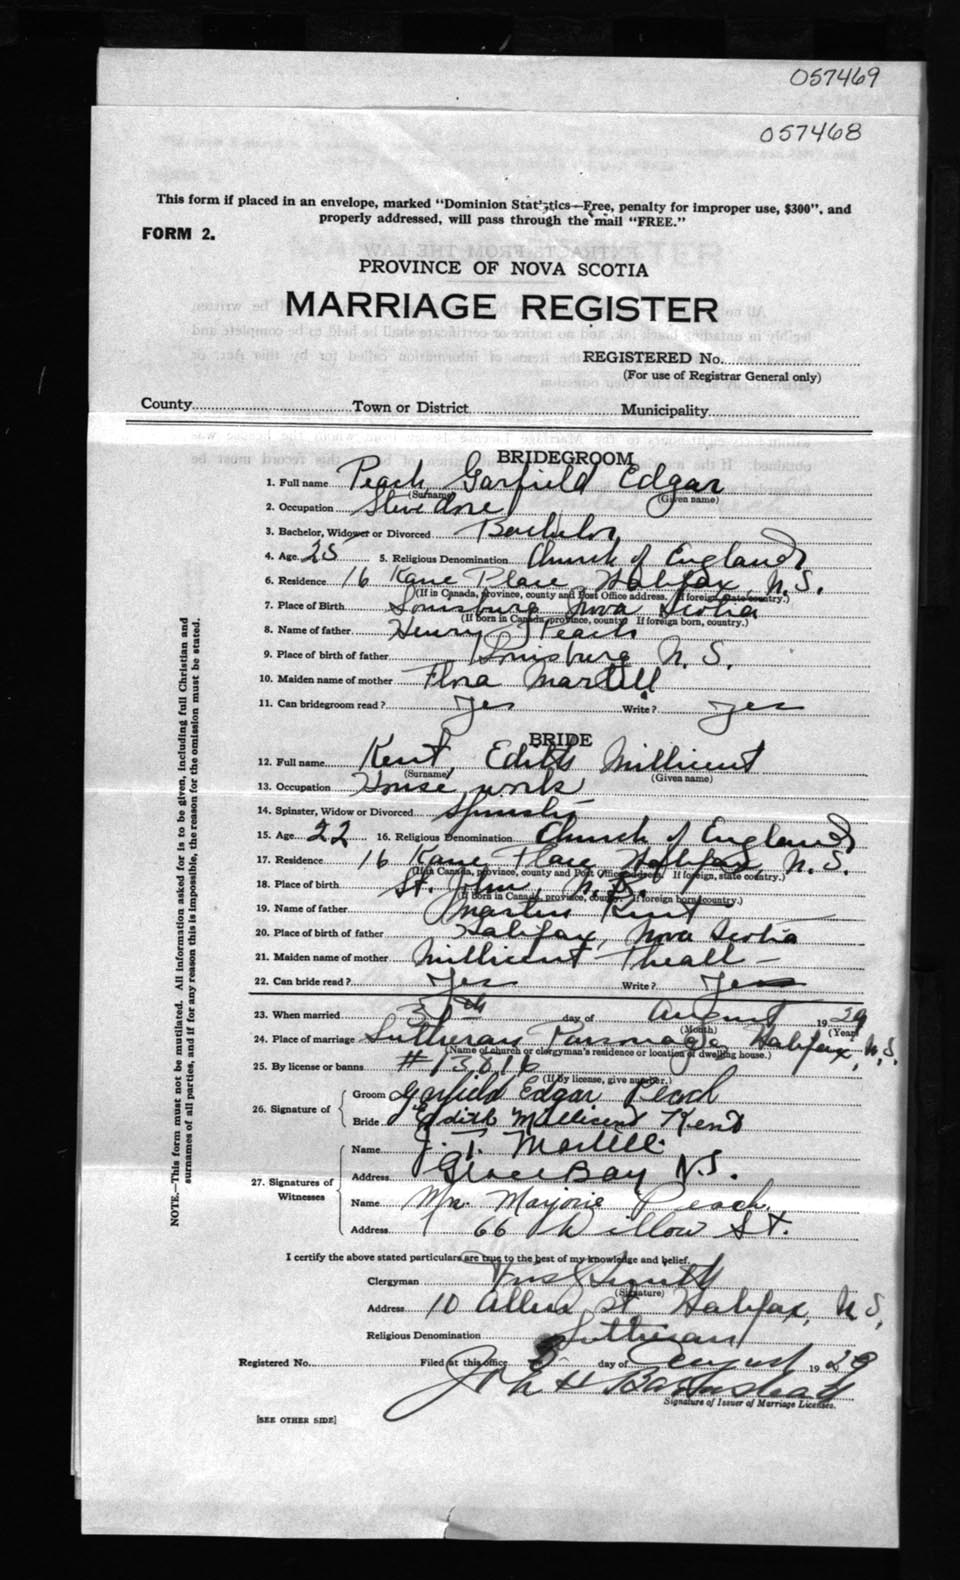 057469
057468
This form if placed in an envelope, marked "Dominion Statistics—Free, penalty for improper use, $300", and
properly addressed, will pass through the mail "FREE."
FORM 2.
PROVINCE OF NOVA SCOTIA
MARRIAGE REGISTER
REGISTERED No.
(For use of Registrar General only)
County Town or District Municipality
BRIDEGROOM
1. Full name Peach Garfield Edgar
(Surname) (Given name)
2. Occupation Stevedore
3. Bachelor, Widower or Divorced Bachelor
4. Age 25 5. Religious Denomination Church of England
6. Residence 16 Kane Place Halifax, N.S.
(If in Canada, province, county and Post Office address. If foreign, state country.)
7. Place of Birth Louisburg Nova Scotia
(If born in Canada, province, county. If foreign born, country.)
8. Name of father Henry Peach
9. Place of birth of father Louisburg N.S.
10. Maiden name of mother Flora Martell
11. Can bridegroom read? Yes Write? Yes
BRIDE
12. Full name Kent, Edith Millicent
(Surname) (Given name)
13. Occupation House work
14. Spinster, Widow or Divorced Spinster
15. Age 22 16. Religious Denomination Church of England
17. Residence 16 Kane Place Halifax, N.S.
(If in Canada, province, county and Post Office address. If foreign, state country.)
18. Place of birth St. John, N.B.
(If born in Canada, province, county. If foreign born, country.)
19. Name of father Martin Kent
20. Place of birth of father Halifax, Nova Scotia
21. Maiden name of mother Millicent Theall —
22. Can bride read? Yes Write? Yes
23. When married day of August 1929
(Month) (Year)
24. Place of marriage Lutheran Parsonage Halifax, N.S.
(Name of church or clergyman's residence or location of dwelling house.)
25. By license or banns #13816
(If by license, give number.)
26. Signature of
Groom Garfield Edgar Peach
Bride Edith Millicent Kent
27. Signatures of Witnesses
Name J. T. Martell
Address Glace Bay N.S.
Name Mrs. Marjorie Peach.
Address 66 Willow St.
I certify the above stated particulars are true to the best of my knowledge and belief.
Clergyman Smith
(Signature)
Address 10 Allen St Halifax, N.S.
Religious Denomination Lutheran
Registered No. Filed at this office day of August 1929
John H Barnstead
Signature of Issuer of Marriage Licenses.
[SEE OTHER SIDE]
NOTE.—This form must not be mutilated. All information asked for is to be given, including full Christian and
surnames of all parties, and if for any reason this is impossible, the reason for the omission must be stated.